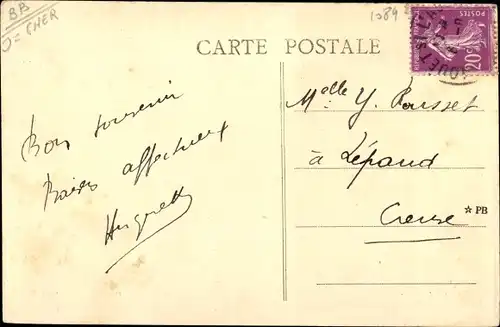 BB
J= CHER
1089
CARTE POSTALE
POSTES
20c
Bon souvenir
Baisers affectueux
Huguette
Melle Y. Rousset
à Lépaud
Creuse
★PB